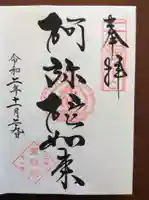 奉拝
阿弥陀如来
令和二年十一月二日